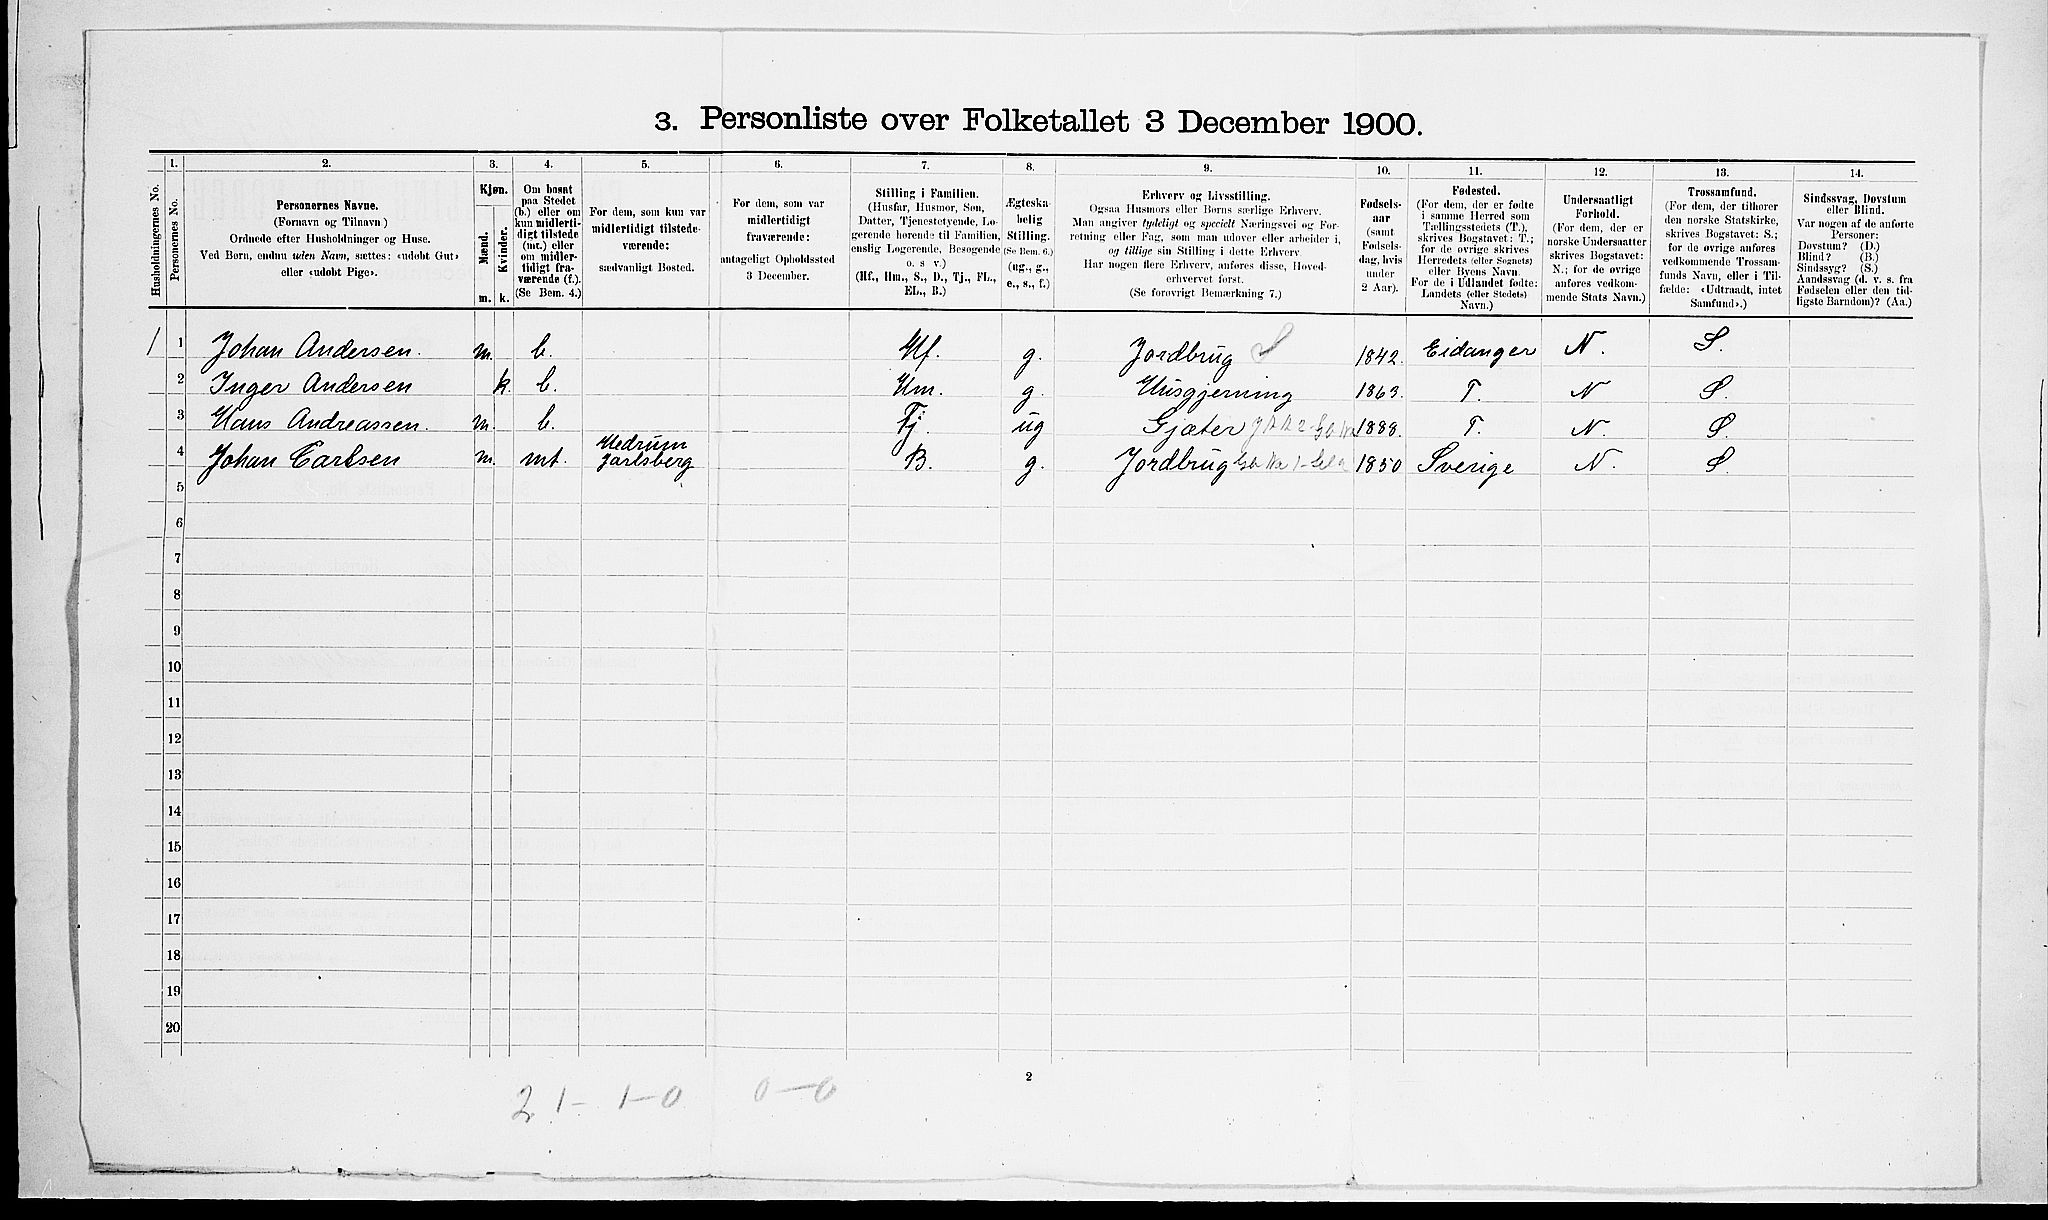 3. Personliste over Folketallet 3 December 1900.
Husholdningernes No.
1. Personernes No.
2. Personernes Navne. (Fornavn og Tilnavn) Ordnede efter Husholdninger og Huse. Ved Børn, endnu uden Navn, sættes: «udøbt Gut» eller «udøbt Pige».
3. Kjøn. Mænd. Kvinder. m. k.
4. Om bosat paa Stedet (b.) eller om kun midlertidigt tilstede (mt.) eller om midlertidigt fraværende (f.). (Se Bem. 4.)
5. For dem, som kun var midlertidigt tilstedeværende: sædvanligt Bosted.
6. For dem, som var midlertidigt fraværende: antageligt Opholdssted 3 December.
7. Stilling i Familien. (Husfar, Husmor, Søn, Datter, Tjenestetyende, Logerende hørende til Familien, enslig Logerende, Besøgende o. s. v.) (Hf., Hm., S., D., Tj., FL., EL., B.)
8. Ægteskabelig Stilling. (Se Bem. 6.) (ug., g., e., s., f.)
9. Erhverv og Livsstilling. Ogsaa Husmors eller Børns særlige Erhverv. Man angiver tydeligt og specielt Næringsvei og Forretning eller Fag, som man udøver eller arbeider i, og tillige sin Stilling i dette Erhverv. Har nogen flere Erhverv, anføres disse, Hovederhvervet først. (Se forøvrigt Bemærkning 7.)
10. Fødselsaar (samt Fødselsdag, hvis under 2 Aar).
11. Fødested. (For dem, der er fødte i samme Herred som Tællingsstedets (T.), skrives Bogstavet: T.; for de øvrige skrives Herredets (eller Sognets) eller Byens Navn. For de i Udlandet fødte: Landets (eller Stedets) Navn.)
12. Undersaatligt Forhold. (For dem, der er norske Undersaatter skrives Bogstavet: N.; for de øvrige anføres vedkommende Stats Navn.)
13. Trossamfund. (For dem, der tilhører den norske Statskirke, skrives Bogstavet: S.; for de øvrige anføres vedkommende Trossamfunds Navn, eller i Tilfælde: «Udtraadt, intet Samfund».)
14. Sindssvag, Døvstum eller Blind. Var nogen af de anførte Personer: Døvstum? (D.) Blind? (B.) Sindssyg? (S.) Aandssvag (d. v. s. fra Fødselen eller den tidligste Barndom)? (Aa.)
1 1 Johan Andersen. m. b. Hf. g. Jordbrug S 1842. Eidanger N. S.
2 Inger Andersen k. b. Hm. g. Husgjerning 1863. T. N S.
3 Hans Andreassen. m. b. Tj. ug Gjæter 1888. T. N. S.
4 Johan Carlsen m. mt. Hedrum Jarlsberg B. g. Jordbrug 1850 Sverige N. S.
5
6
7
8
9
10
11
12
13
14
15
16
17
18
19
20
2
2 1- 1-0 0-0